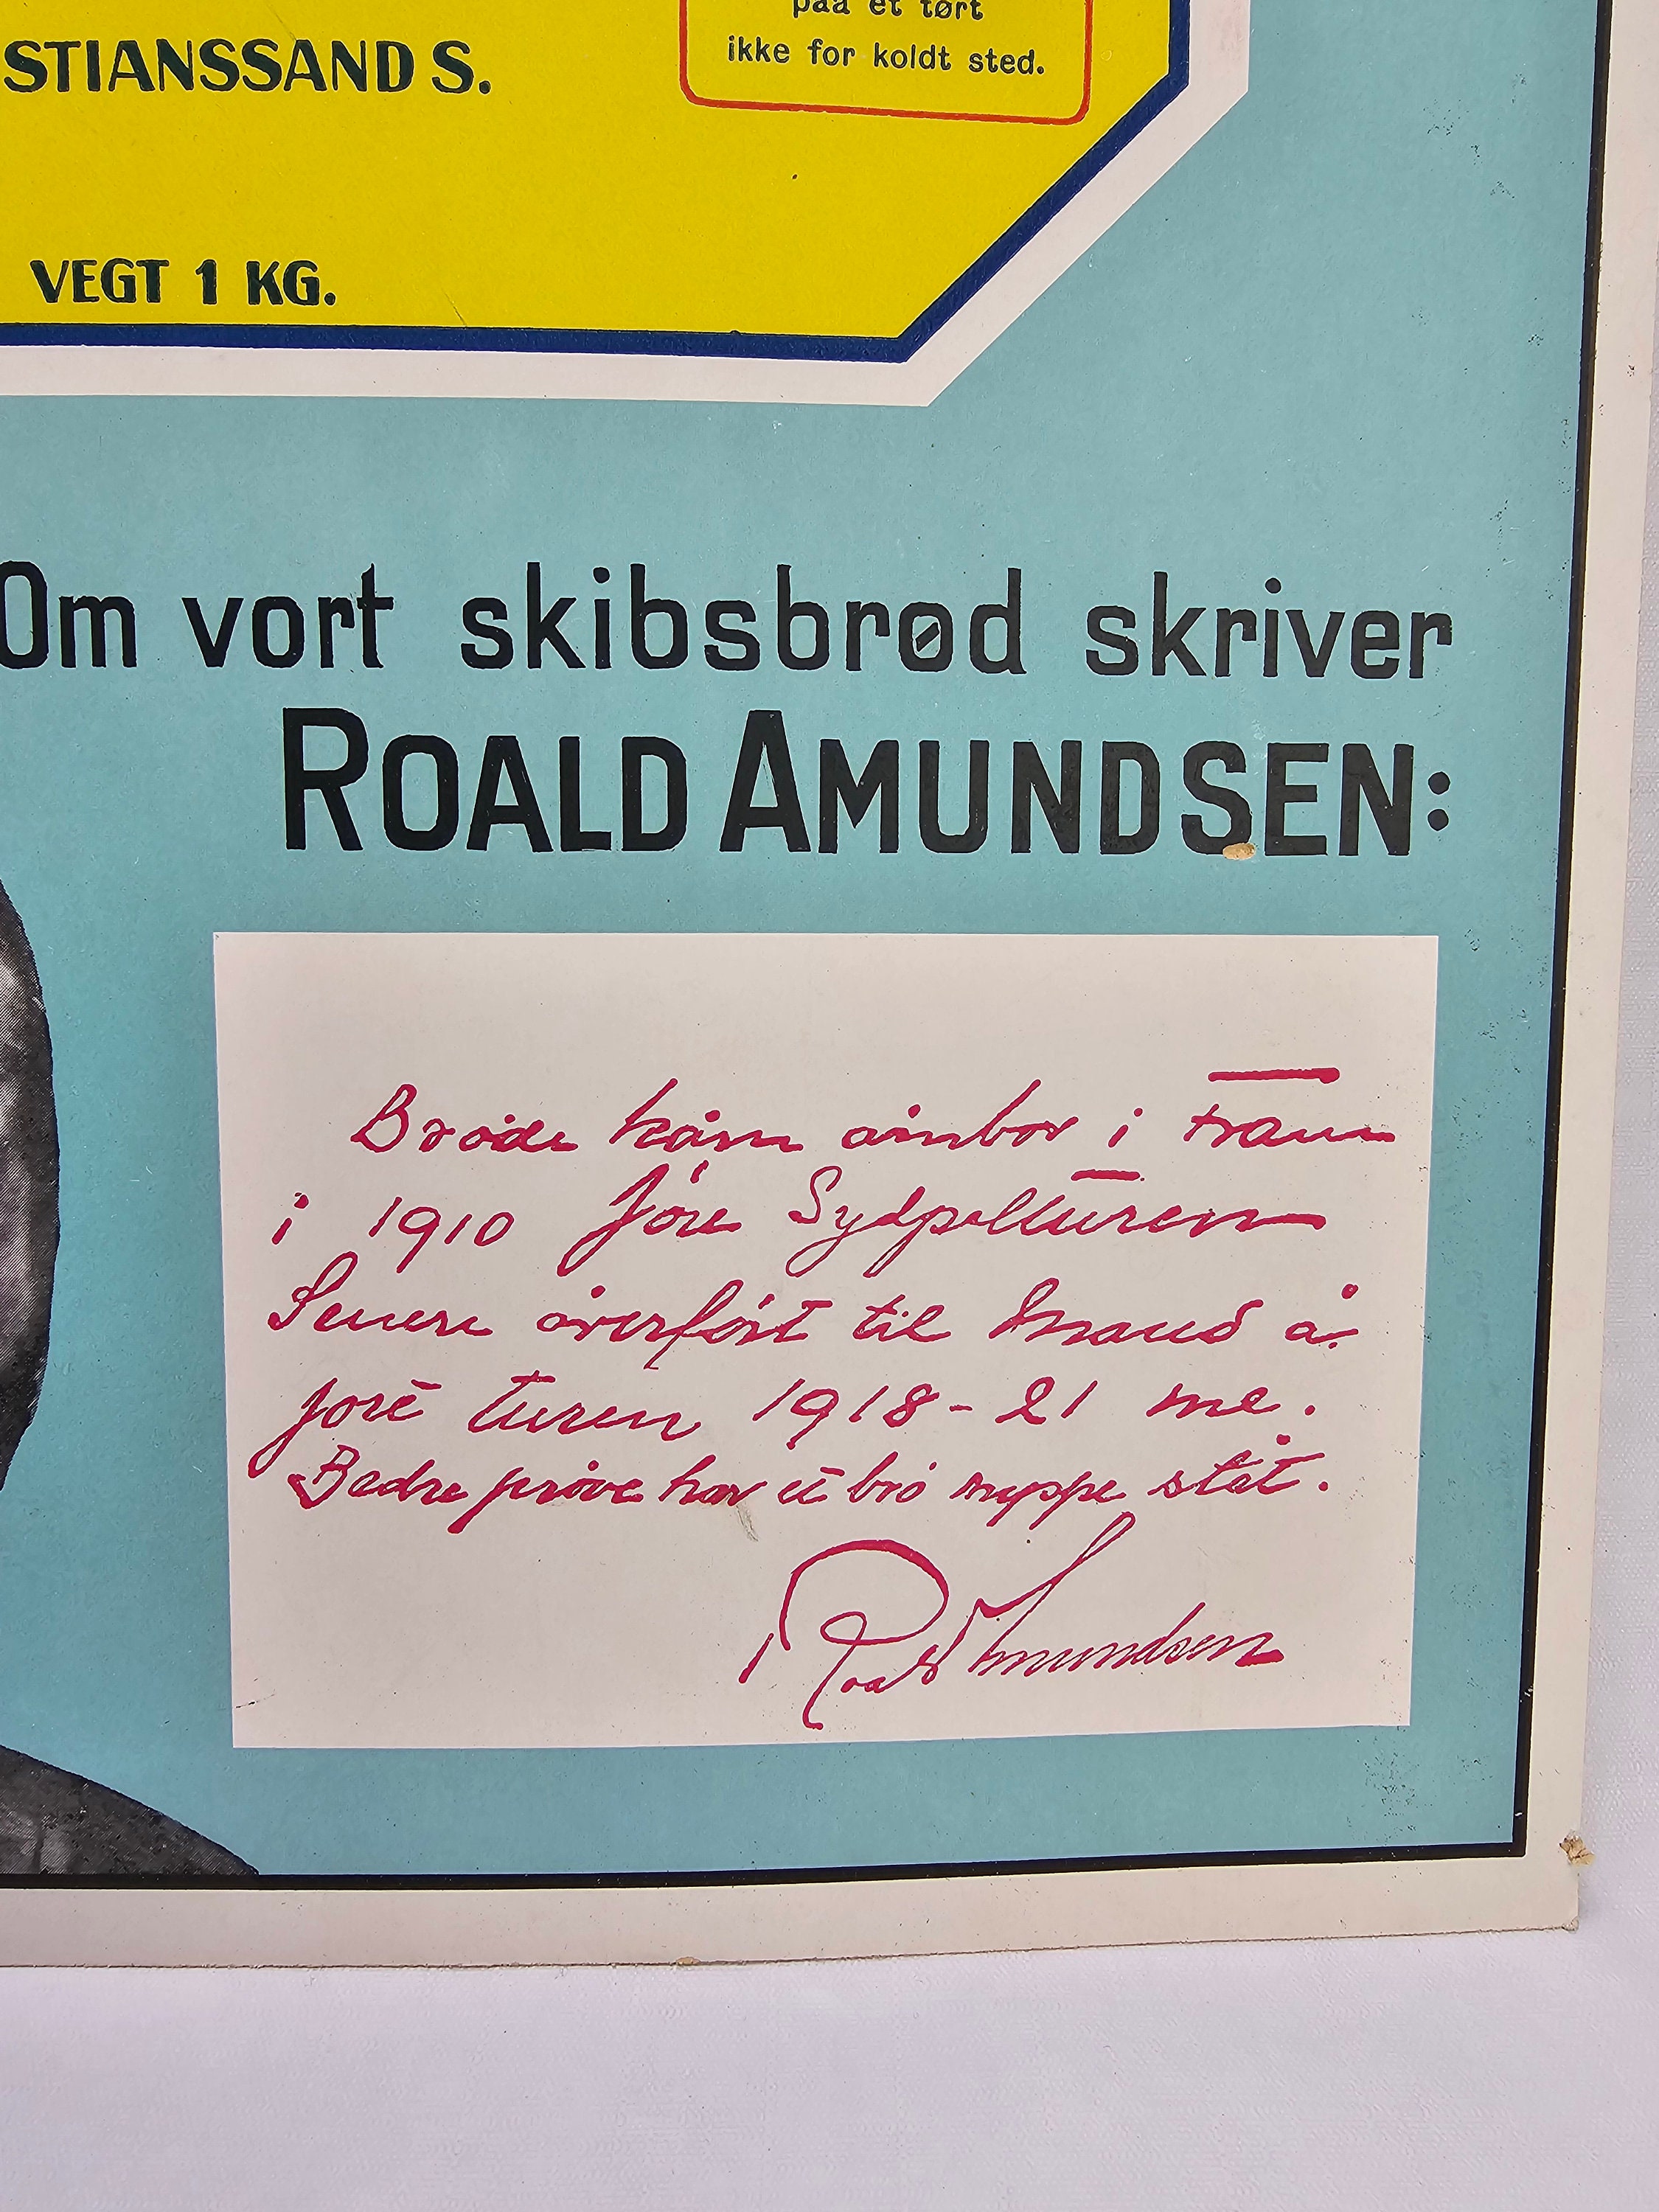 paa et tørt
ikke for koldt sted.
STIANSSAND S.
VEGT 1 KG.
Om vort skibsbrød skriver
ROALD AMUNDSEN:
Brøde kåm åmbor i Fram
i 1910 føre Sydpolturen
Senere åverført til Maud å
føre turen 1918-21 me.
Bedre prøve har et brø nyppe ståt.
Roald Amundsen